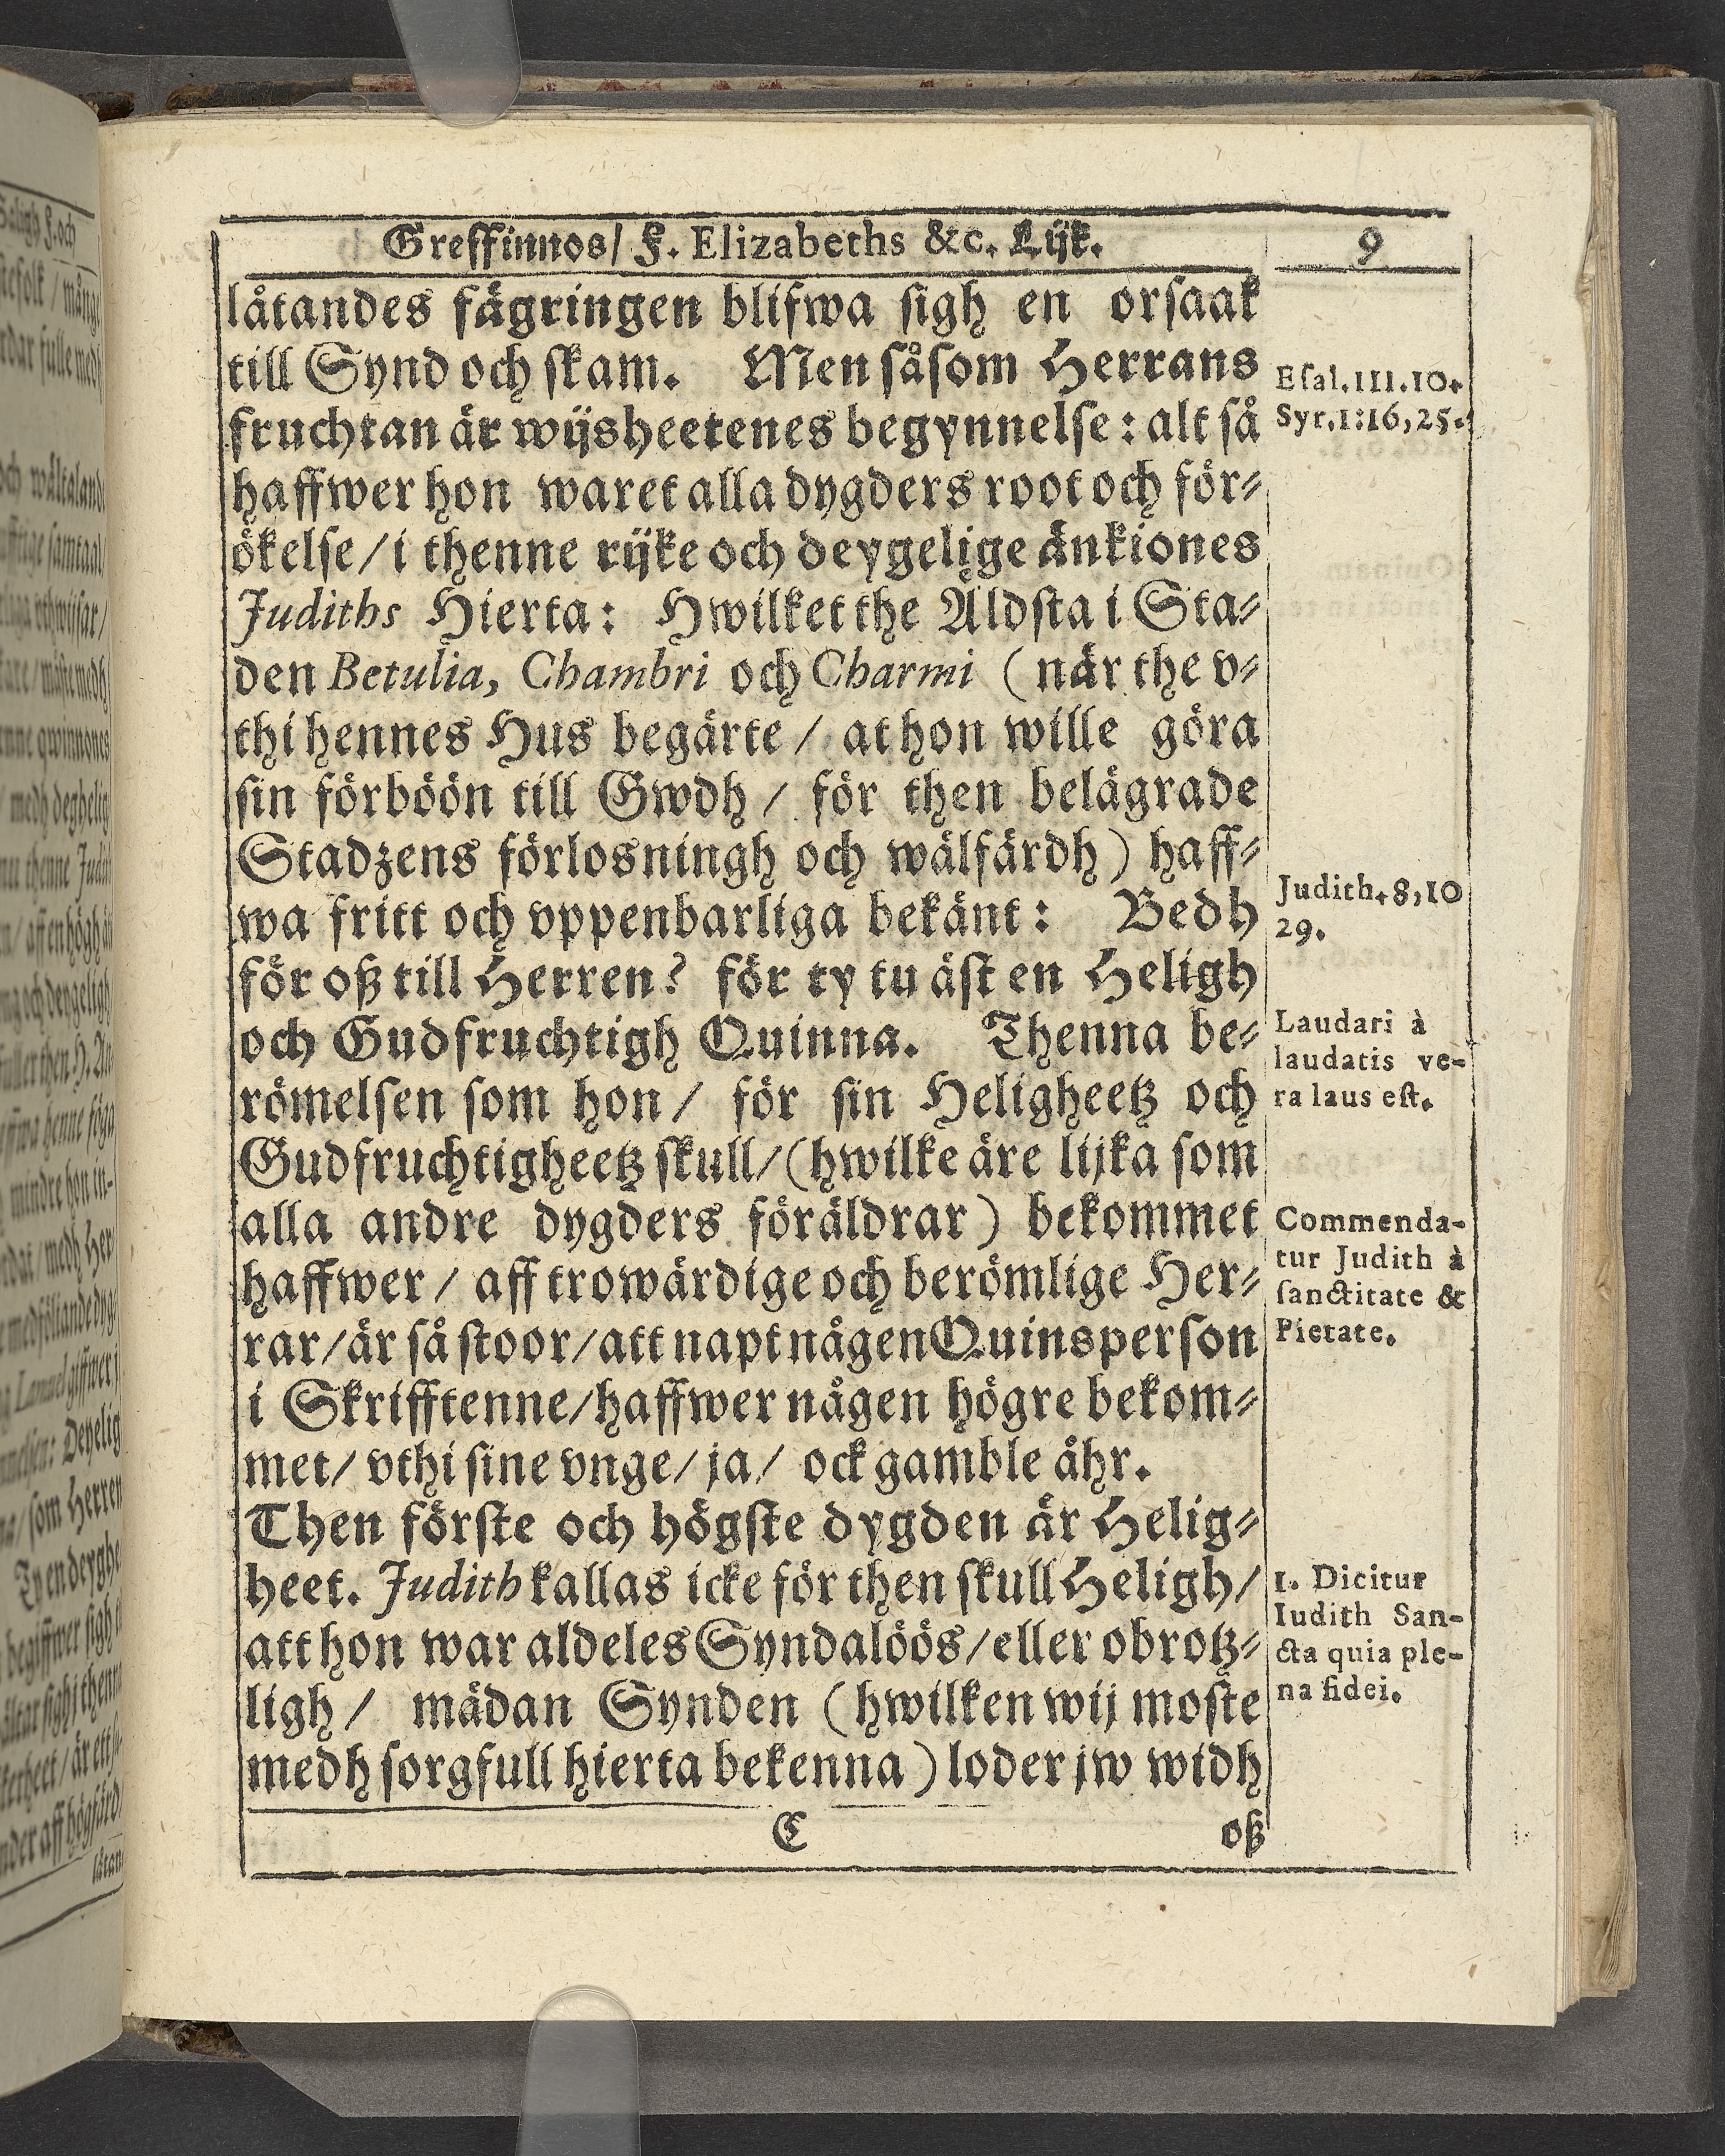 Greffinnos/ F. Elizabeths &c. Lijk. 9
låtandes fägringen blifwa sigh en orsaak
till Synd och skam. Men såsom Herrans
fruchtan är wijsheetenes begynnelse: alt så
haffwer hon waret alla dygders root och för-
ökelse/ i thenne rijke och deygelige änkiones
Judiths Hierta: Hwilket the Äldsta i Sta-
den Betulia, Chambri och Charmi (när the v-
thi hennes Hus begärte/ at hon wille göra
sin förböön till Gwdh/ för then belägrade
Stadzens förlosningh och wälfärdh) haff-
wa fritt och vppenbarliga bekänt: Bedh
för oß till Herren? för ty tu äst en Heligh
och Gudfruchtigh Quinna. Thenna be-
römelsen som hon/ för sin Heligheetz och
Gudfruchtigheetz skull/ (hwilke äre lijka som
alla andre dygders föräldrar) bekommet
haffwer/ aff trowärdige och berömlige Her-
rar/ är så stoor/ att napt någen Quinsperson
i Skrifftenne/ haffwer någen högre bekom-
met/ vthi sine vnge/ ja/ ock gamble åhr.
Then förste och högste dygden är Helig-
heet. Judith kallas icke för then skull Heligh/
att hon war aldeles Syndalöös/ eller obrotz-
ligh/ mädan Synden (hwilken wij moste
medh sorgfull hierta bekenna) loder jw widh
C oß
Esal. 111. 10.
Syr. 1: 16, 25.
Judith. 8, 10
29.
Laudari à
laudatis ve-
ra laus est.
Commenda-
tur Judith à
sanctitate &
Pietate.
1. Dicitur
Iudith San-
cta quia ple-
na fidei.